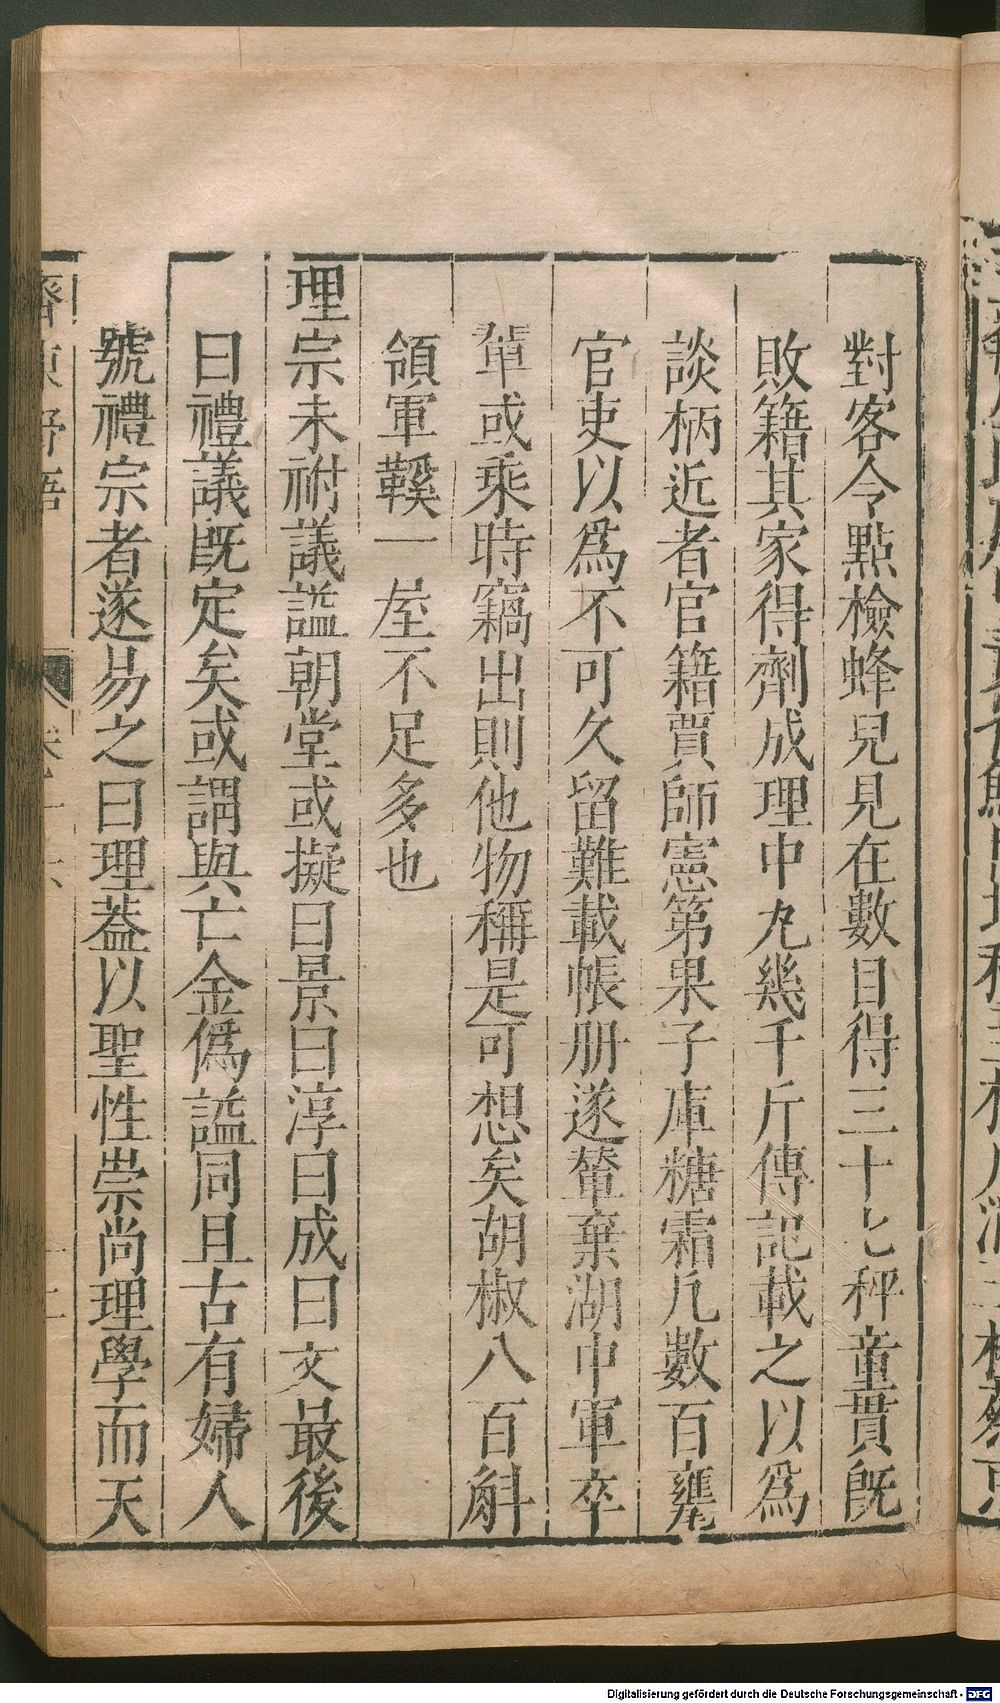 對客令點檢蜂兒見在數目得三十七秤童貫既
敗籍其家得劑成理中丸幾千斤傳記載之以為
談柄近者官籍賈師憲第果子庫糖霜凢數百罋
官吏以爲不可久留難載帳册遂輦棄湖中軍卒
輩或乘時竊出則他物稱是可想矣胡椒八百斛
領軍鞵一屋不足多也
理宗未祔議謚朝堂或擬曰景曰淳曰成曰文最後
曰禮議既定矣或謂與亡金僞謚同且古有婦人
號禮宗者遂易之曰理蓋以聖性崇尚理學而天
齊東野語
Digitalisierung gefördert durch die Deutsche Forschungsgemeinschaft - DFG